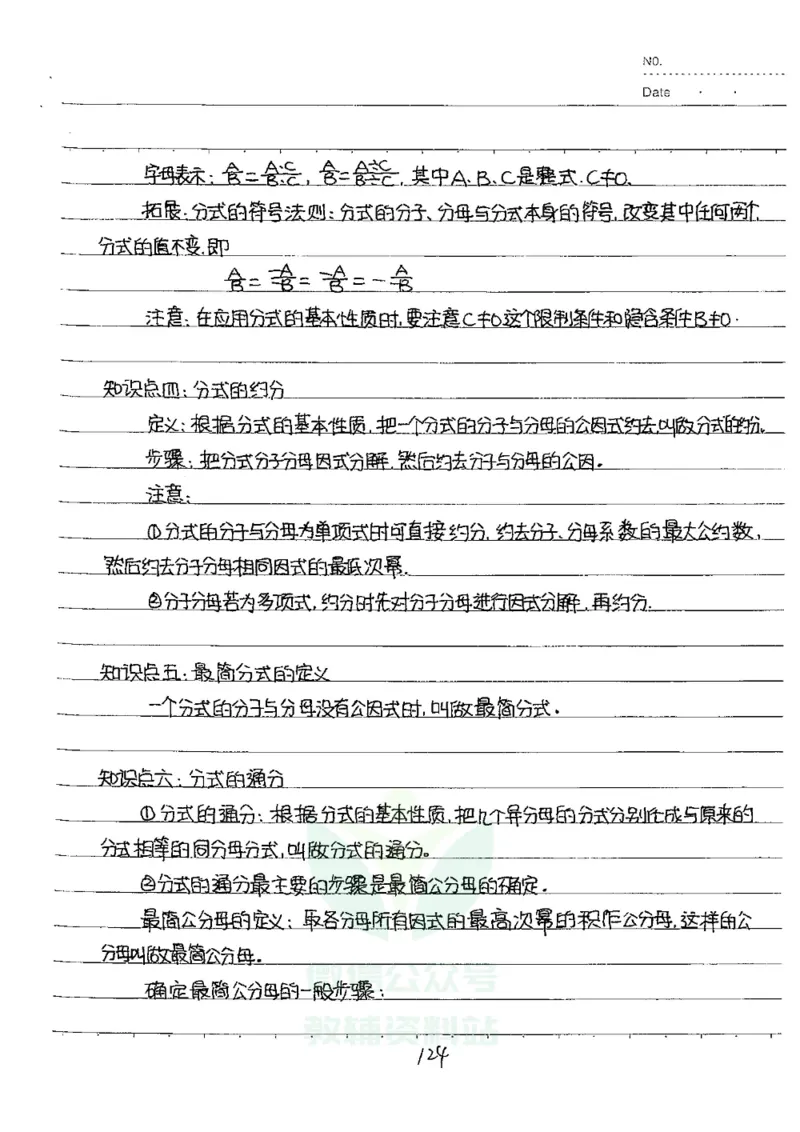 NO.
Date · ·
字母表示: A/B = A·C/B·C, A/B = A÷C/B÷C, 其中A、B、C是整式.C≠0.
拓展:分式的符号法则:分式的分子、分母与分式本身的符号,改变其中任何两个,
分式的值不变,即
A/B = -A/-B = -A/B = - A/-B
注意:在应用分式的基本性质时,要注意C≠0这个限制条件和隐含条件B≠0.
知识点四:分式的约分
定义:根据分式的基本性质,把一个分式的分子与分母的公因式约去叫做分式的约分.
步骤:把分式分子分母因式分解,然后约去分子与分母的公因。
注意:
①分式的分子与分母为单项式时可直接约分,约去分子、分母系数的最大公约数,
然后约去分子分母相同因式的最低次幂.
②分子分母若为多项式,约分时先对分子分母进行因式分解,再约分.
知识点五:最简分式的定义
一个分式的分子与分母没有公因式时,叫做最简分式.
知识点六:分式的通分
①分式的通分:根据分式的基本性质,把几个异分母的分式分别化成与原来的
分式相等的同分母分式,叫做分式的通分。
②分式的通分最主要的步骤是最简公分母的确定.
最简公分母的定义:取各分母所有因式的最高次幂的积作公分母,这样的公
分母叫做最简公分母.
确定最简公分母的一般步骤:
微信公众号
教辅资料站
124